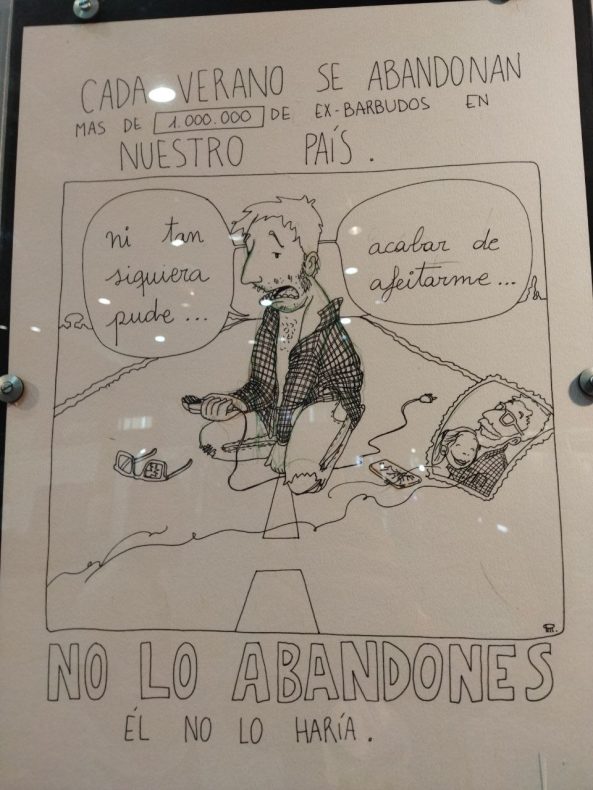 CADA VERANO SE ABANDONAN
MAS DE 1.000.000 DE EX-BARBUDOS EN
NUESTRO PAÍS.
ni tan
siquiera
pude...
acabar de
afeitarme...
NO LO ABANDONES
ÉL NO LO HARÍA.